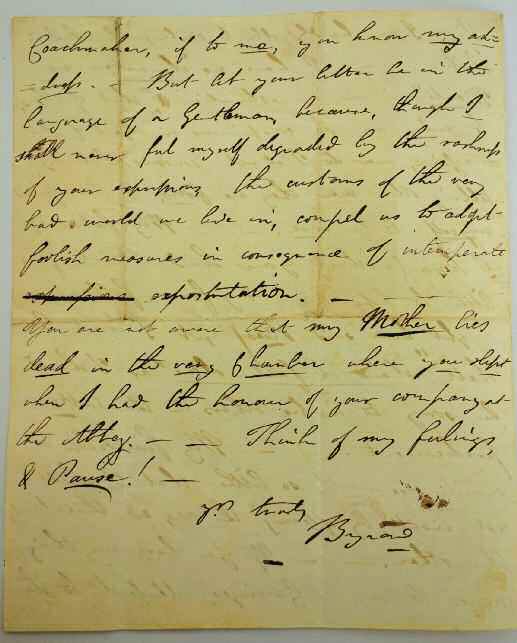 Coachmaker, if to me, you know my ad=
=dress. - But let your letter be in the
language of a Gentleman, because, though I
shall never feel myself degraded by the rashness
of your expressions, the customs of the very
bad world we live in, compel us to adopt
foolish measures in consequence of intemperate
expressions expostulation. —
You are not aware that my Mother lies
dead in the very Chamber where you slept
when I had the honour of your company at
the Abbey. — — Think of my feelings,
& Pause! —
yrs truly
Byron